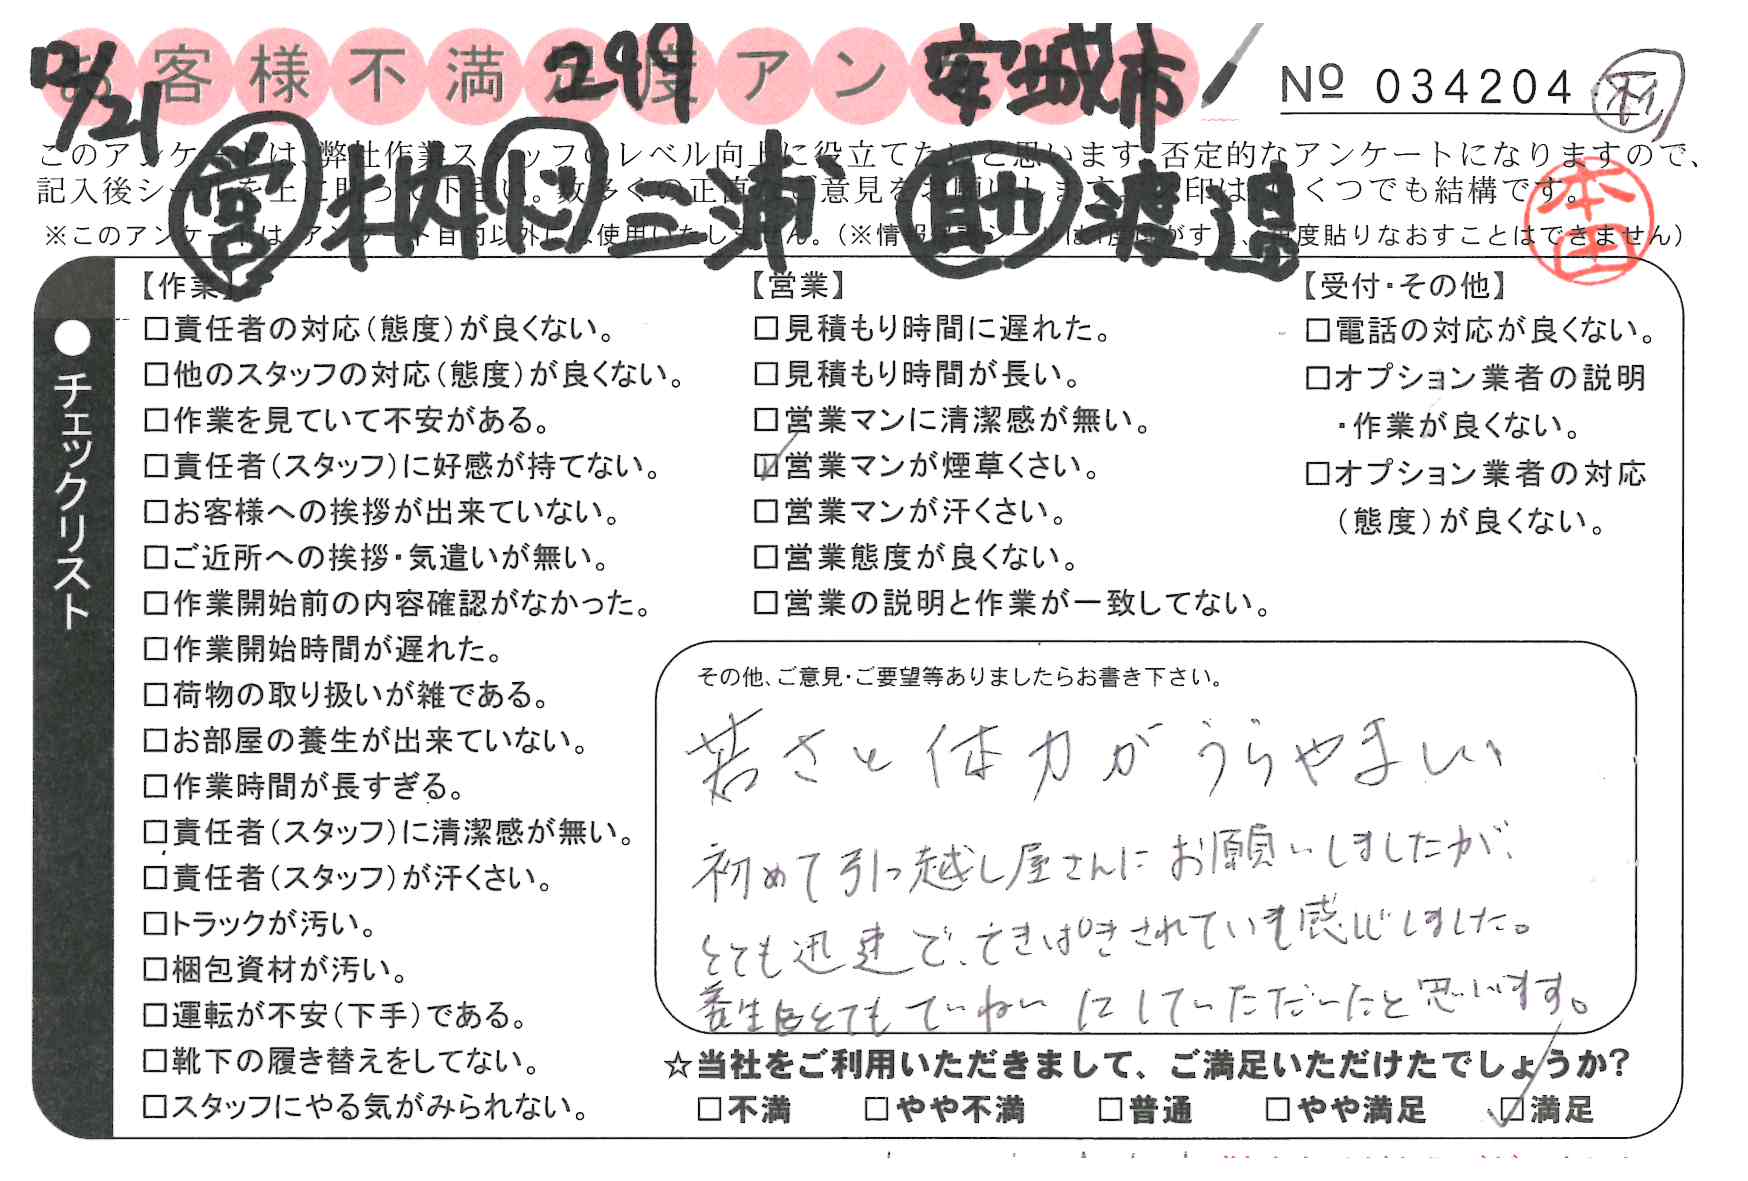 お客様不満足度アン
12/21 299 安城市
No 034204
このアンケートは、弊社作業スタッフのレベル向上に役立てたいと思います。否定的なアンケートになりますので、
記入後シールを上に貼って下さい。数多くの正直なご意見をお願いします。印はいくつでも結構です。
営 三浦 助 渡邉
本田
※このアンケートは、アンケート目的以外には使用いたしません。(※情報
再度貼りなおすことはできません)
●チェックリスト
【作業】
□責任者の対応(態度)が良くない。
□他のスタッフの対応(態度)が良くない。
□作業を見ていて不安がある。
□責任者(スタッフ)に好感が持てない。
□お客様への挨拶が出来ていない。
□ご近所への挨拶・気遣いが無い。
□作業開始前の内容確認がなかった。
□作業開始時間が遅れた。
□荷物の取り扱いが雑である。
□お部屋の養生が出来ていない。
□作業時間が長すぎる。
□責任者(スタッフ)に清潔感が無い。
□責任者(スタッフ)が汗くさい。
□トラックが汚い。
□梱包資材が汚い。
□運転が不安(下手)である。
□靴下の履き替えをしてない。
□スタッフにやる気がみられない。
【営業】
□見積もり時間に遅れた。
□見積もり時間が長い。
□営業マンに清潔感が無い。
☑営業マンが煙草くさい。
□営業マンが汗くさい。
□営業態度が良くない。
□営業の説明と作業が一致してない。
【受付・その他】
□電話の対応が良くない。
□オプション業者の説明
・作業が良くない。
□オプション業者の対応
(態度)が良くない。
その他、ご意見・ご要望等ありましたらお書き下さい。
若さと体力がうらやましい
初めて引っ越し屋さんにお願いしましたが、
とても迅速で、てきぱきされていて感じしました。
養生もとてもていねいにしていただいたと思います。
☆当社をご利用いただきまして、ご満足いただけたでしょうか?
□不満 □やや不満 □普通 □やや満足 ☑満足